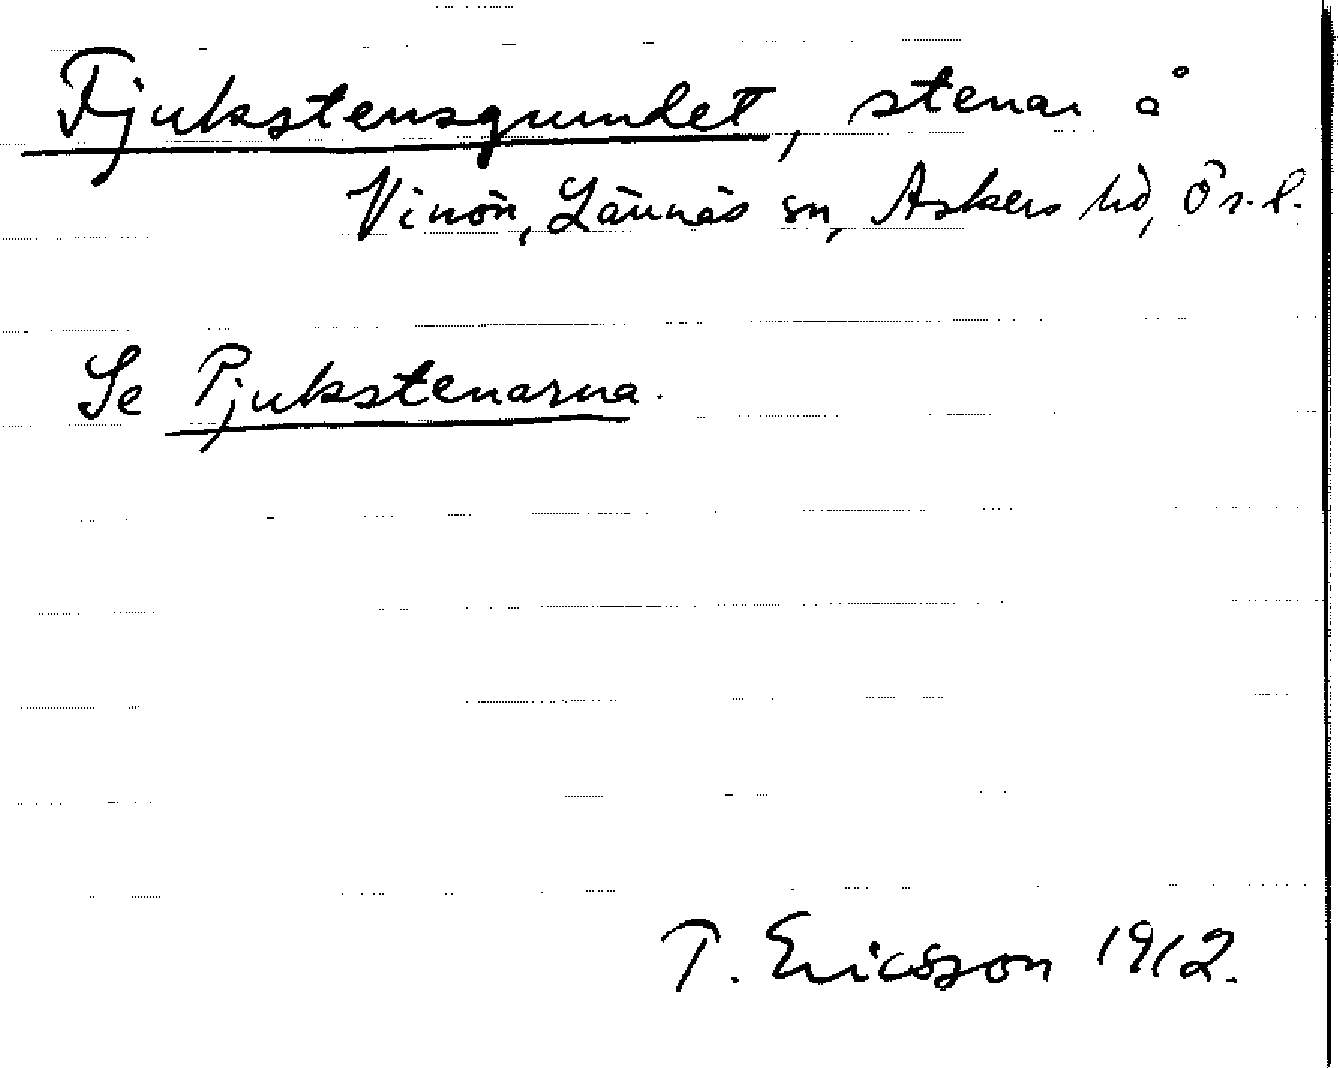 Fjukstensgrundet, stenar å
Vinön, Lännäs sn, Askers hd, Ör. l.
Se Pjukstenarna.
T. Ericsson 1912.